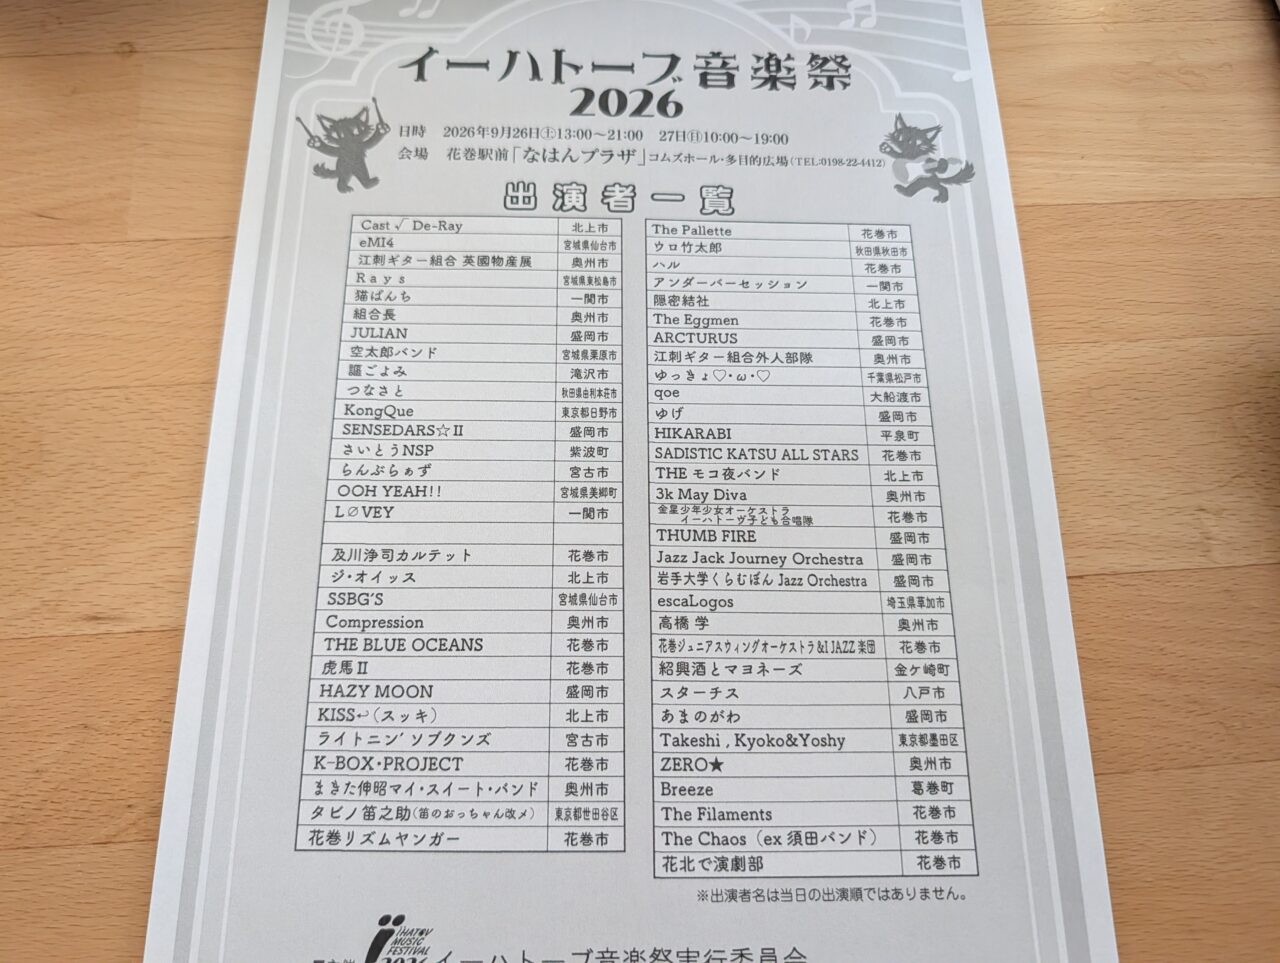 イーハトーブ音楽祭
2026
日時 2026年9月26日㊏13:00〜21:00 27日㊐10:00〜19:00
会場 花巻駅前「なはんプラザ」コムズホール・多目的広場(TEL:0198-22-4412)
出演者一覧
Cast √ De-Ray 北上市
eMI4 宮城県仙台市
江刺ギター組合 英國物産展 奥州市
Rays 宮城県東松島市
猫ぱんち 一関市
組合長 奥州市
JULIAN 盛岡市
空太郎バンド 宮城県栗原市
謳ごよみ 滝沢市
つなさと 秋田県由利本荘市
KongQue 東京都日野市
SENSEDARS☆Ⅱ 盛岡市
さいとうNSP 紫波町
らんぶらぁず 宮古市
OOH YEAH!! 宮城県美郷町
L∅VEY 一関市
及川浄司カルテット 花巻市
ジ・オイッス 北上市
SSBG'S 宮城県仙台市
Compression 奥州市
THE BLUE OCEANS 花巻市
虎馬Ⅱ 花巻市
HAZY MOON 盛岡市
KISS↩(スッキ) 北上市
ライトニン'ソブクンズ 宮古市
K-BOX・PROJECT 花巻市
まきた伸昭マイ・スイート・バンド 奥州市
タビノ笛之助(笛のおっちゃん改メ) 東京都世田谷区
花巻リズムヤンガー 花巻市
The Pallette 花巻市
ウロ竹太郎 秋田県秋田市
ハル 花巻市
アンダーバーセッション 一関市
隠密結社 北上市
The Eggmen 花巻市
ARCTURUS 盛岡市
江刺ギター組合外人部隊 奥州市
ゆっきょ♡・ω・♡ 千葉県松戸市
qoe 大船渡市
ゆげ 盛岡市
HIKARABI 平泉町
SADISTIC KATSU ALL STARS 花巻市
THE モコ夜バンド 北上市
3k May Diva 奥州市
金星少年少女オーケストラ
イーハトーヴ子ども合唱隊 花巻市
THUMB FIRE 盛岡市
Jazz Jack Journey Orchestra 盛岡市
岩手大学くらむぼん Jazz Orchestra 盛岡市
escaLogos 埼玉県草加市
高橋 学 奥州市
花巻ジュニアスウィングオーケストラ&I JAZZ 楽団 花巻市
紹興酒とマヨネーズ 金ケ崎町
スターチス 八戸市
あまのがわ 盛岡市
Takeshi , Kyoko&Yoshy 東京都墨田区
ZERO★ 奥州市
Breeze 葛巻町
The Filaments 花巻市
The Chaos (ex 須田バンド) 花巻市
花北で演劇部 花巻市
※出演者名は当日の出演順ではありません。
IHATOV
MUSIC
FESTIVAL
2026
イーハトーブ音楽祭実行委員会